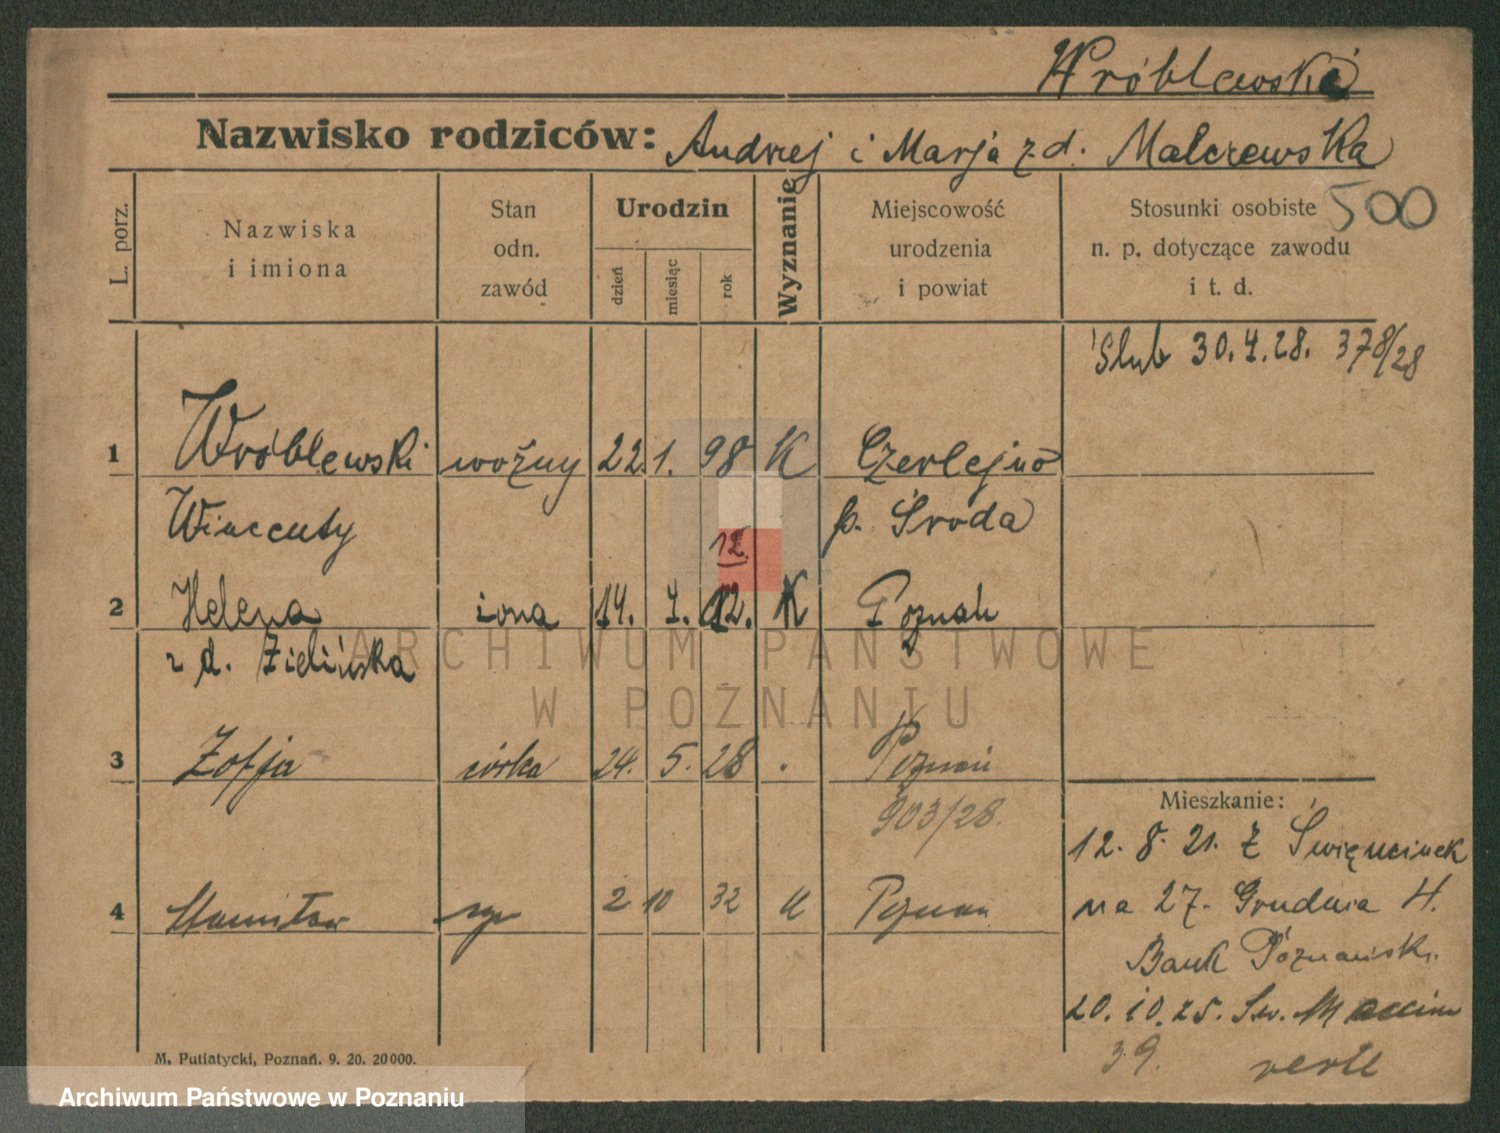 Wróblewski
Nazwisko rodziców: Andrzej i Marja z d. Malczewska
500
L. porz.
Nazwiska
i imiona
Stan
odn.
zawód
Urodzin
dzień
miesiąc
rok
Wyznanie
Miejscowość
urodzenia
i powiat
Stosunki osobiste
n. p. dotyczące zawodu
i t. d.
Ślub 30.4.28. 378/28
1 Wróblewski woźny 22. 1. 98 K Czerlejno
Wincenty p. Środa
12.
2 Helena żona 14. 4. 12. K Poznań
z d. Zielińska
3 Zofja córka 24. 5. 28 Poznań
903/28.
4 Stanisław syn 2 10 32 K Poznań
Mieszkanie:
12. 8. 21. z Święcinek
na 27. Grudnia 4.
Bank Poznański.
20. 10. 25. Św. Marcin
39.
verte
M. Putiatycki, Poznań. 9. 20. 20 000.
ARCHIWUM PAŃSTWOWE
W POZNANIU
Archiwum Państwowe w Poznaniu